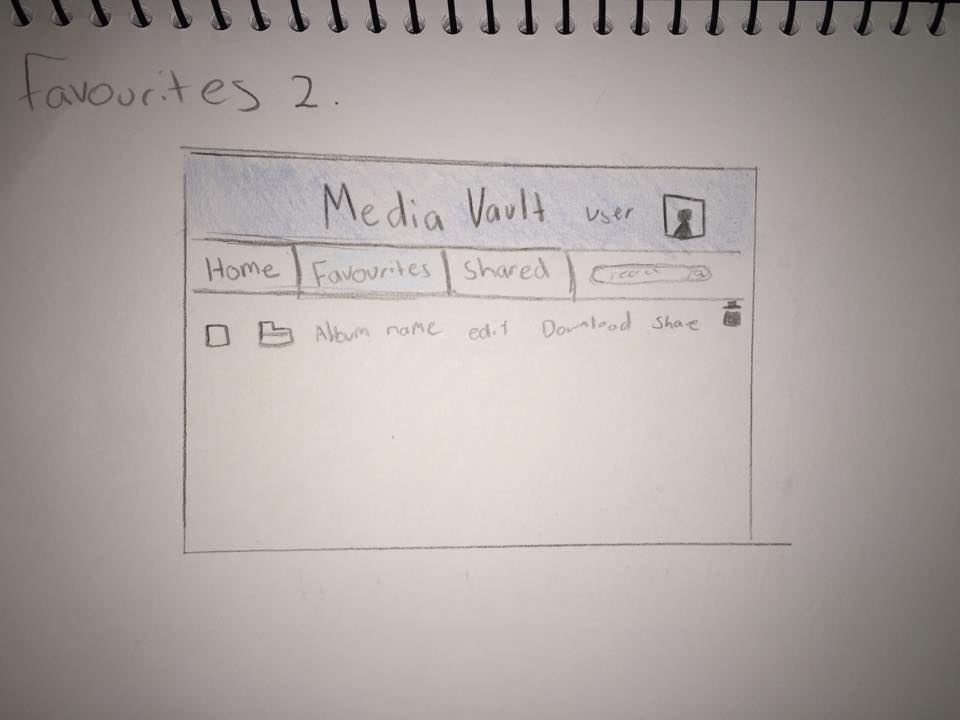 Favourites 2.
Media Vault user
Home Favourites Shared
Album name edit Download Share